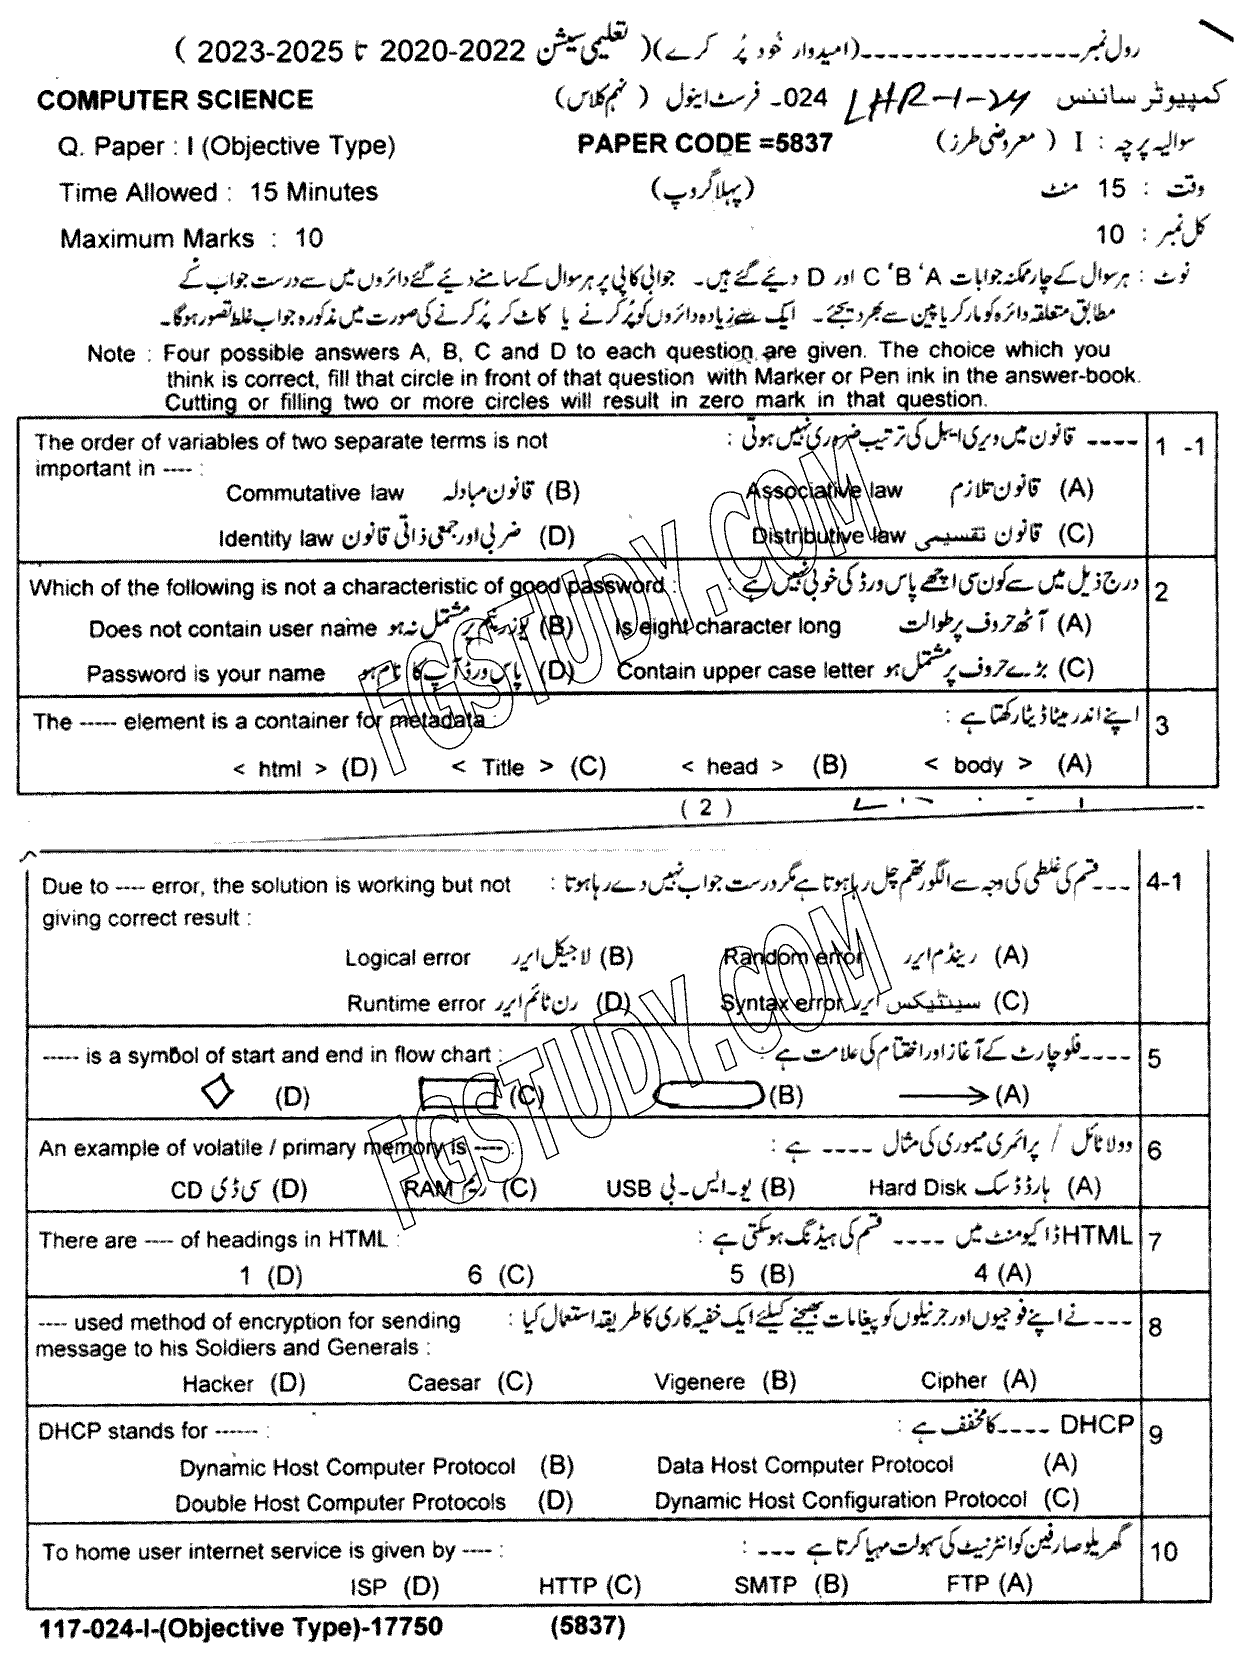 رول نمبر----------------(امیدوار خود پُر کرے)( تعلیمی سیشن 2022-2020 تا 2025-2023 )
COMPUTER SCIENCE 024۔ فرسٹ اینول ( نہم کلاس) LHR-1-24 کمپیوٹر سائنس
Q. Paper : I (Objective Type) PAPER CODE =5837 سوالیہ پرچہ : I ( معروضی طرز)
Time Allowed : 15 Minutes (پہلا گروپ) وقت : 15 منٹ
Maximum Marks : 10 کل نمبر : 10
نوٹ : ہر سوال کے چار ممکنہ جوابات C 'B 'A اور D دیئے گئے ہیں۔ جوابی کاپی پر ہر سوال کے سامنے دیئے گئے دائروں میں سے درست جواب کے
مطابق متعلقہ دائرہ کو مارکر یا پین سے بھر دیجئے۔ ایک سے زیادہ دائروں کو پُر کرنے یا کاٹ کر پُر کرنے کی صورت میں مذکورہ جواب غلط تصور ہوگا۔
Note : Four possible answers A, B, C and D to each question are given. The choice which you
think is correct, fill that circle in front of that question with Marker or Pen ink in the answer-book.
Cutting or filling two or more circles will result in zero mark in that question.
The order of variables of two separate terms is not ---- قانون میں ویری ایبل کی ترتیب ضروری نہیں ہوتی : 1 -1
important in ---- :
Commutative law قانون مبادلہ (B) Associative law قانون تلازم (A)
Identity law ضربی اور جمعی ذاتی قانون (D) Distributive law قانون تقسیمی (C)
Which of the following is not a characteristic of good password : درج ذیل میں سے کون سی اچھے پاس ورڈ کی خوبی نہیں ہے : 2
Does not contain user name یوزر نیم پر مشتمل نہ ہو (B) Is eight character long آٹھ حروف پر طوالت (A)
Password is your name پاس ورڈ آپ کا نام ہو (D) Contain upper case letter بڑے حروف پر مشتمل ہو (C)
The ----- element is a container for metadata : اپنے اندر میٹا ڈیٹا رکھتا ہے : 3
< html > (D) < Title > (C) < head > (B) < body > (A)
( 2 )
Due to ---- error, the solution is working but not ---قسم کی غلطی کی وجہ سے الگورتھم چل رہا ہوتا ہے مگر درست جواب نہیں دے رہا ہوتا : 4-1
giving correct result :
Logical error لاجیکل ایرر (B) Random error رینڈم ایرر (A)
Runtime error رن ٹائم ایرر (D) Syntax error سینٹیکس ایرر (C)
----- is a symbol of start and end in flow chart : ----فلو چارٹ کے آغاز اور اختتام کی علامت ہے : 5
(D) (C) (B) (A)
An example of volatile / primary memory is ---- : وولاٹائل / پرائمری میموری کی مثال ---- ہے : 6
CD سی ڈی (D) RAM ریم (C) USB یو-ایس-بی (B) Hard Disk ہارڈ ڈسک (A)
There are ---- of headings in HTML : HTML ڈاکیومنٹ میں ---- قسم کی ہیڈنگ ہوسکتی ہے : 7
1 (D) 6 (C) 5 (B) 4 (A)
---- used method of encryption for sending ---نے اپنے فوجیوں اور جرنیلوں کو پیغامات بھیجنے کیلئے ایک خفیہ کاری کا طریقہ استعمال کیا : 8
message to his Soldiers and Generals :
Hacker (D) Caesar (C) Vigenere (B) Cipher (A)
DHCP stands for ------ : DHCP ----کا مخفف ہے : 9
Dynamic Host Computer Protocol (B) Data Host Computer Protocol (A)
Double Host Computer Protocols (D) Dynamic Host Configuration Protocol (C)
To home user internet service is given by ---- : گھریلو صارفین کو انٹرنیٹ کی سہولت مہیا کرتا ہے --- : 10
ISP (D) HTTP (C) SMTP (B) FTP (A)
117-024-I-(Objective Type)-17750 (5837)
FGSTUDY.COM
FGSTUDY.COM